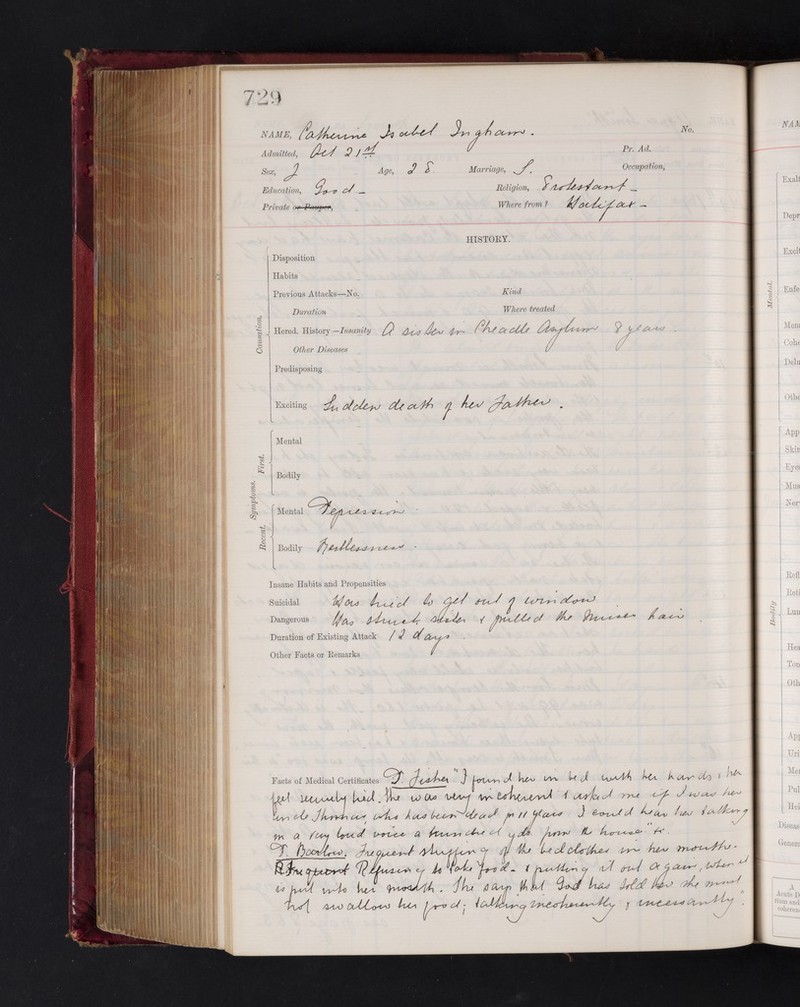 729
NAME, Catherine Isabel Ingham. No.
Admitted, Oct 21st Pr. Ad.
Sex, F Age, 28 Marriage, S. Occupation,
Education, Good Religion, Protestant
Private or Pauper, Where from? Halifax
HISTORY.
Disposition
Habits
Previous Attacks—No. Kind
Duration Where treated
Causation.
Hered. History—Insanity A sister in Cheadle Asylum 8 years
Other Diseases
Predisposing
Exciting Sudden death of her Father.
Symptoms. First.
Mental
Bodily
Recent.
Mental Depression.
Bodily Restlessness.
Insane Habits and Propensities
Suicidal Has tried to get out of window
Dangerous Has struck sister & pulled the Nurses hair.
Duration of Existing Attack 12 days
Other Facts or Remarks
Facts of Medical Certificates T. Fisher "I found her in bed with her hands & her
feet securely tied. She was very incoherent & asked me if I was her
uncle Thomas, who has been dead for 11 years I could hear her talking
in a very loud voice a hundred yds from the house" &c.
T. Barlow. Frequent stuffing of the bedclothes in her mouth.
Refusing to take food - & putting it out again, when it
is put into her mouth. She says that God has told her she must
not swallow her food; talking incoherently & incessantly".
NAM
Exalt
Depr
Excit
Enfe
Mental.
Mem
Cohe
Delu
Othe
App
Skin
Eyes
Mus
Nerv
Refl
Reti
Bodily
Lun
Hea
Ton
Oth
App
Uri
Men
Pul
Hei
Disease
General
A
Acute D
rium and
coheren